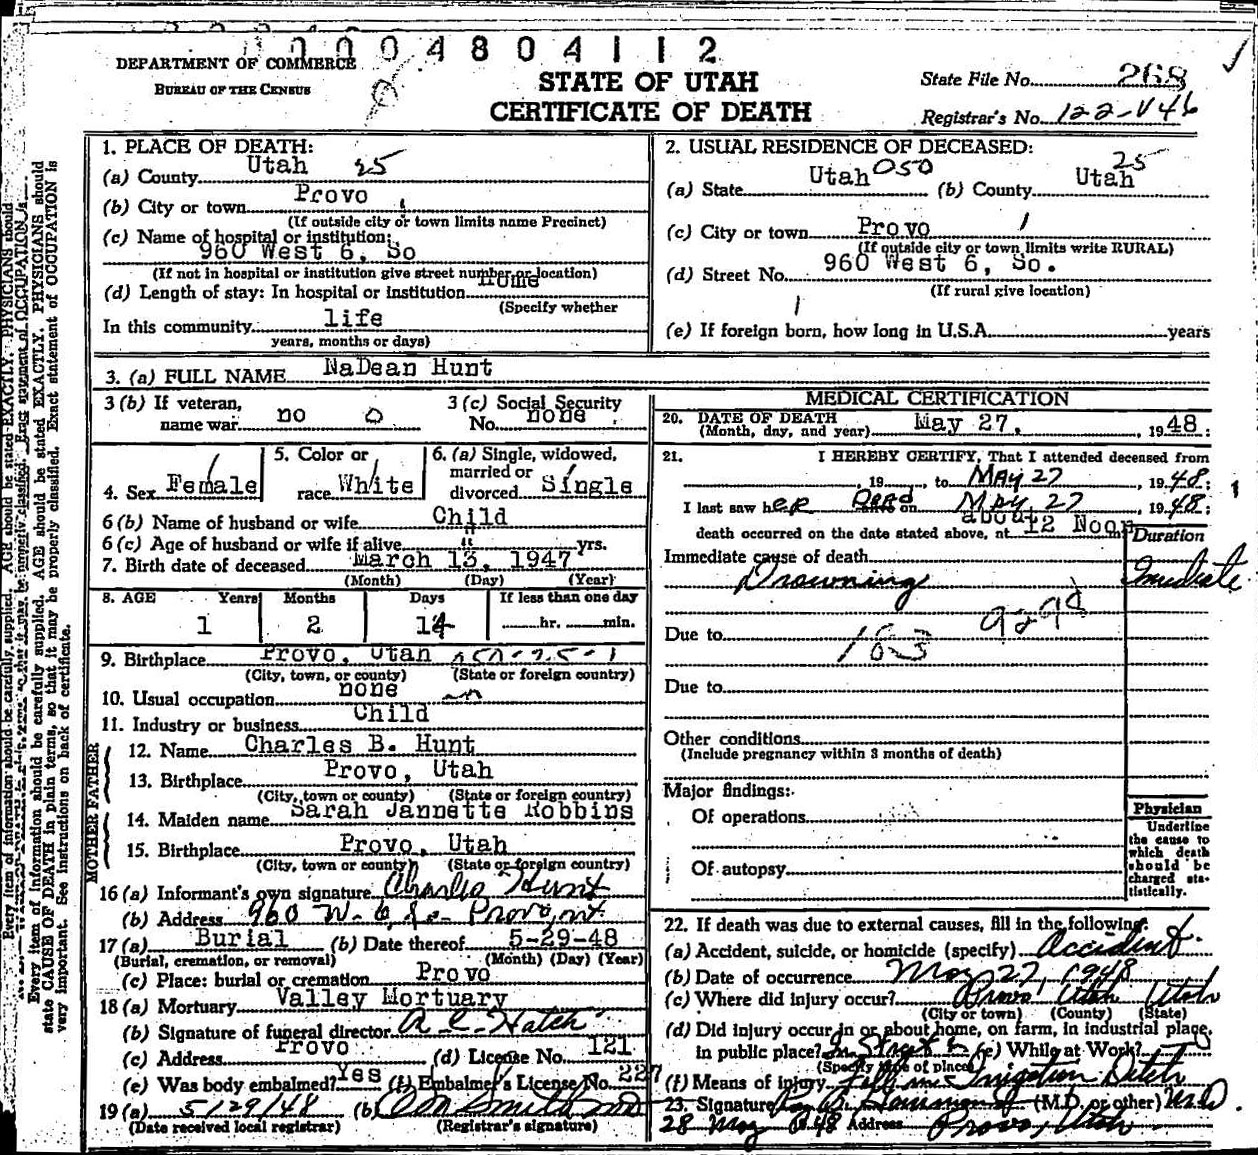 0004804112
DEPARTMENT OF COMMERCE
BUREAU OF THE CENSUS
STATE OF UTAH
CERTIFICATE OF DEATH
State File No. 268
Registrar's No. 122-V46
1. PLACE OF DEATH:
(a) County Utah 25
(b) City or town Provo 1
(If outside city or town limits name Precinct)
(c) Name of hospital or institution:
960 West 6, So
(If not in hospital or institution give street number or location)
(d) Length of stay: In hospital or institution Home
(Specify whether
In this community life
years, months or days)
2. USUAL RESIDENCE OF DECEASED:
(a) State Utah 050 (b) County Utah 25
(c) City or town Provo 1
(If outside city or town limits write RURAL)
(d) Street No. 960 West 6, So.
(If rural give location)
1
(e) If foreign born, how long in U.S.A. years
3. (a) FULL NAME NaDean Hunt
3 (b) If veteran, name war no 0
3 (c) Social Security No. none
4. Sex Female
5. Color or race White
6. (a) Single, widowed, married or divorced Single
6 (b) Name of husband or wife Child
6 (c) Age of husband or wife if alive " yrs.
7. Birth date of deceased March 13, 1947
(Month) (Day) (Year)
8. AGE Years Months Days If less than one day
1 2 14 hr. min.
9. Birthplace Provo, Utah
(City, town, or county) (State or foreign country)
10. Usual occupation none
11. Industry or business Child
FATHER
12. Name Charles B. Hunt
13. Birthplace Provo, Utah
(City, town or county) (State or foreign country)
MOTHER
14. Maiden name Sarah Jannette Robbins
15. Birthplace Provo, Utah
(City, town or county) (State or foreign country)
16 (a) Informant's own signature Charles Hunt
(b) Address 960 W. 6 So Provo, ut
17 (a) Burial (b) Date thereof 5-29-48
(Burial, cremation, or removal) (Month) (Day) (Year)
(c) Place: burial or cremation Provo
18 (a) Mortuary Valley Mortuary
(b) Signature of funeral director A. C. Hatch
(c) Address Provo (d) License No. 121
(e) Was body embalmed? Yes (f) Embalmer's License No. 227
19 (a) 5/29/48 (b)
(Date received local registrar) (Registrar's signature)
MEDICAL CERTIFICATION
20. DATE OF DEATH
(Month, day, and year) May 27, , 1948;
21. I HEREBY CERTIFY, That I attended deceased from
, 19 , to MAY 27 1948;
I last saw her Dead on MAY 27 1948;
death occurred on the date stated above, at about 12 Noon
Duration
Immediate cause of death
Drowning Imediate
929d
Due to 183
Due to
Other conditions
(Include pregnancy within 3 months of death)
Major findings:
Of operations
Of autopsy
Physician
Underline
the cause to
which death
should be
charged sta-
tistically.
22. If death was due to external causes, fill in the following:
(a) Accident, suicide, or homicide (specify) Accident.
(b) Date of occurrence May 27, 1948
(c) Where did injury occur? Provo, Utah Utah
(City or town) (County) (State)
(d) Did injury occur in or about home, on farm, in industrial place,
in public place? In Street (e) While at Work?
(Specify type of place)
(f) Means of injury Fell in Irrigation Ditch
23. Signature (M.D. or other) M.D.
28 May 1948 Address Provo, Utah
Every item of information should be carefully supplied. AGE should be stated EXACTLY. PHYSICIANS should
state CAUSE OF DEATH in plain terms, so that it may be properly classified. Exact statement of OCCUPATION is
very important. See instructions on back of certificate.